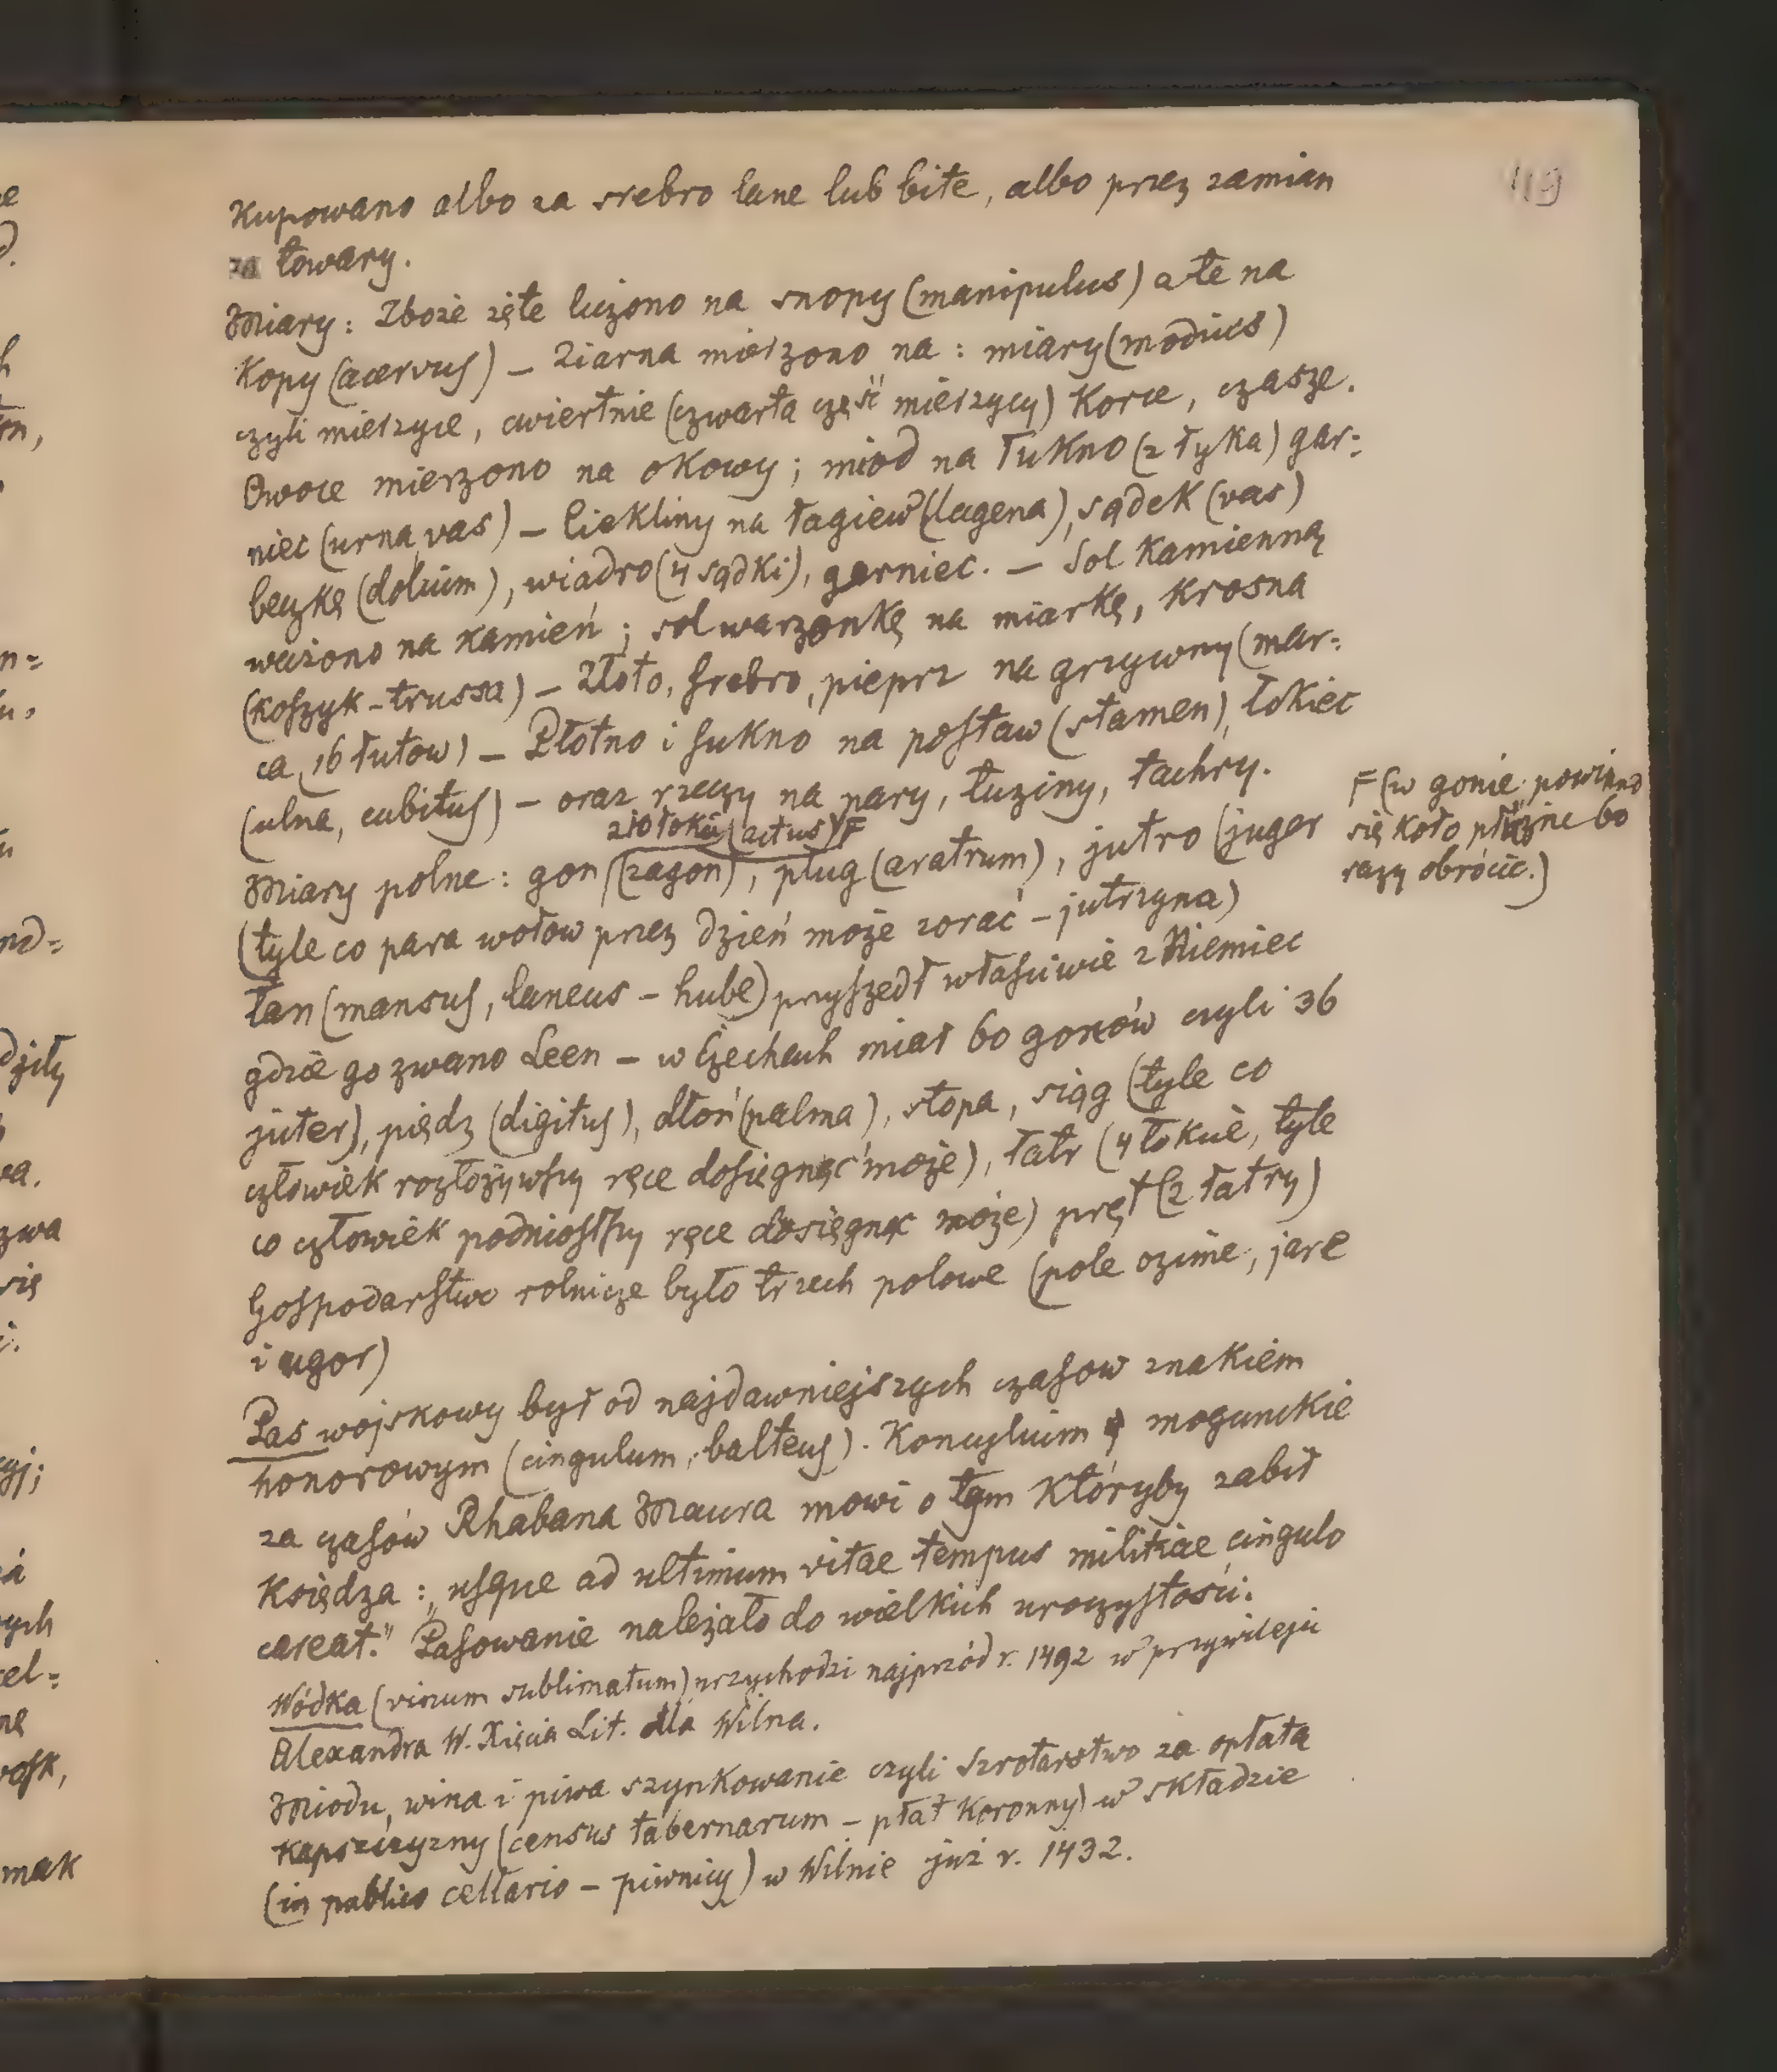 119
Kupowano albo za srebro lane lub bite, albo przez zamian
za towary.
Miary: Zboże zęte liczono na snopy (manipulus) a te na
Kopy (acervus) – Ziarna mierzono na: miary (modius)
czyli mierzyce, cwiertnie (czwarta część mierzycy) Korce, czasze.
Owoce mierzono na okowy; miód na łukno (z łyka) gar=
niec (urna, vas) – Ciekliny na łagiew (lagena), sądek (vas)
beczkę (dolium), wiadro (4 sądki), garniec. – Sol Kamienną
ważono na kamień; sol warzonkę na miarkę, Krosna
(koszyk – trussa) – Złoto, srebro, pieprz na grzywny (mar=
ca, 16 łutow) – Płotno i sukno na postaw (stamen), łokiec
(ulna, cubitus) – oraz rzeczy na pary, tuziny, tachry.
Miary polne: gon (zagon), pług (aratrum), jutro (juger
(actus) F
F (w gonie powinno
się koło płużne 60
razy obrócić.)
(tyle co para wołow przez dzień może zorać – jutrzyna)
Łan (mansus, laneus – hube) przyszedł właściwie z Niemiec
gdzie go zwano Leen – w Czechach miał 60 gonów czyli 36
juter), piędz (digitus), dłoń (palma), stopa, siąg (tyle co
człowiek rozłożywszy ręce dosięgnąć może), łatr (4 łokcie, tyle
co człowiek podniosłszy ręce dosięgnąć może) pręt (2 łatry)
Gospodarstwo rolnicze było trzech polowe (pole ozime, jare
i ugor)
Pas wojskowy był od najdawniejszych czasow znakiem
honorowym (cingulum, balteus). Koncylium mogunckie
za czasów Rhabana Maura mowi o tym któryby zabił
Księdza: „usque ad ultimum vitae tempus militiae cingulo
careat." Pasowanie należało do wielkich uroczystości.
Wódka (vinum sublimatum) przychodzi najprzód r. 1492 w przywileju
Alexandra W. Xięcia Lit. dla Wilna.
Miodu, wina i piwa szynkowanie czyli Szrotarstwo za opłatą
Kapszczyzny (census tabernarum – płat Koronny) w składzie
(in publico cellario – piwnicy) w Wilnie już r. 1432.